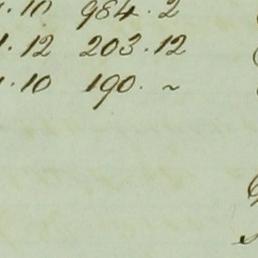 .10 984.2
.12 203.12
.10 190. ~